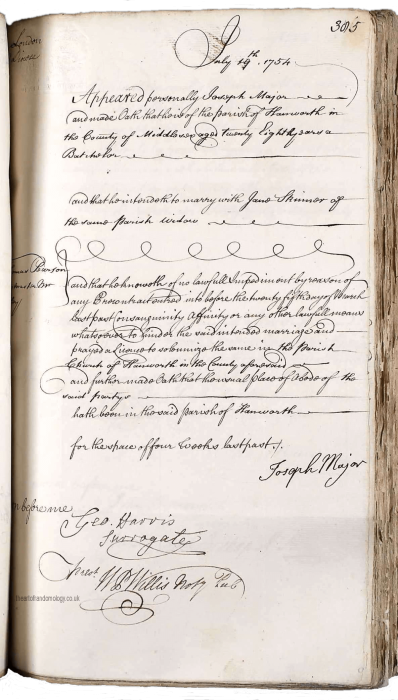 305
London
July 19th. 1754
Appeared personally Joseph Major
and made Oath that he is of the parish of Hanworth in
the County of Middlesex aged twenty Eight years a
Batchelor
and that he intendeth to marry with Jane Skinner of
the same Parish Widow
and that he knoweth of no lawfull Impediment by reason of
any Precontract entred into before the twenty fifth day of March
last past Consanguinity Affinity or any other lawfull means
whatsoever to hinder the said intended marriage and
prayed a Licence to solemnize the same in the Parish
Church of Hanworth in the County aforesaid
and further made Oath that the usual place of Abode of the
said partys
hath been in the said parish of Hanworth
for the space of four Weeks last past.
Joseph Major
before me
Geo. Harris
Surrogate
W P Willis Noty Pub
theartofrandomology.co.uk